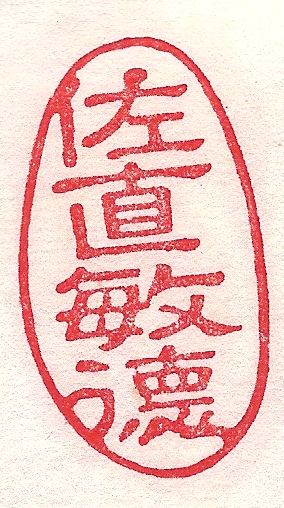 佐直敏德